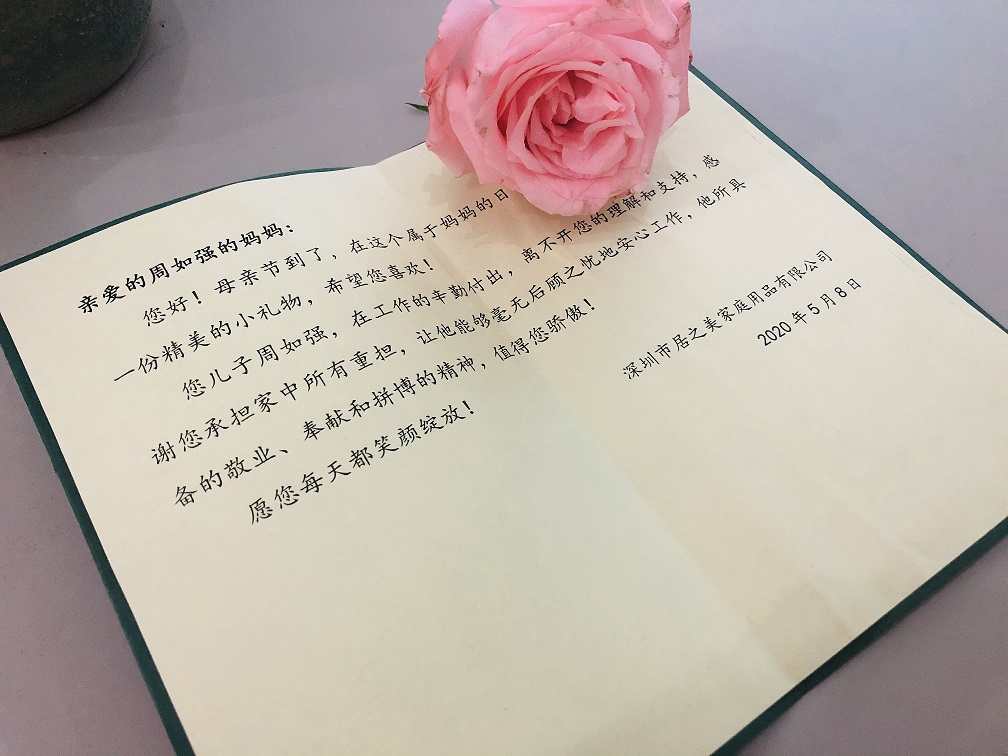 亲爱的周如强的妈妈：
您好！母亲节到了，在这个属于妈妈的日
一份精美的小礼物，希望您喜欢！
您儿子周如强，在工作的辛勤付出，离不开您的理解和支持，感
谢您承担家中所有重担，让他能够毫无后顾之忧地安心工作，他所具
备的敬业、奉献和拼博的精神，值得您骄傲！
愿您每天都笑颜绽放！
深圳市居之美家庭用品有限公司
2020年5月8日